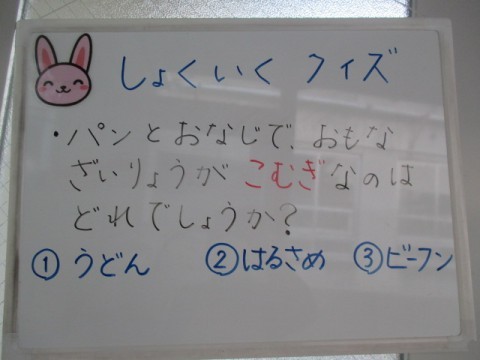 しょくいく クイズ
・パンとおなじで、おもな
ざいりょうが こむぎなのは
どれでしょうか?
①うどん ②はるさめ ③ビーフン